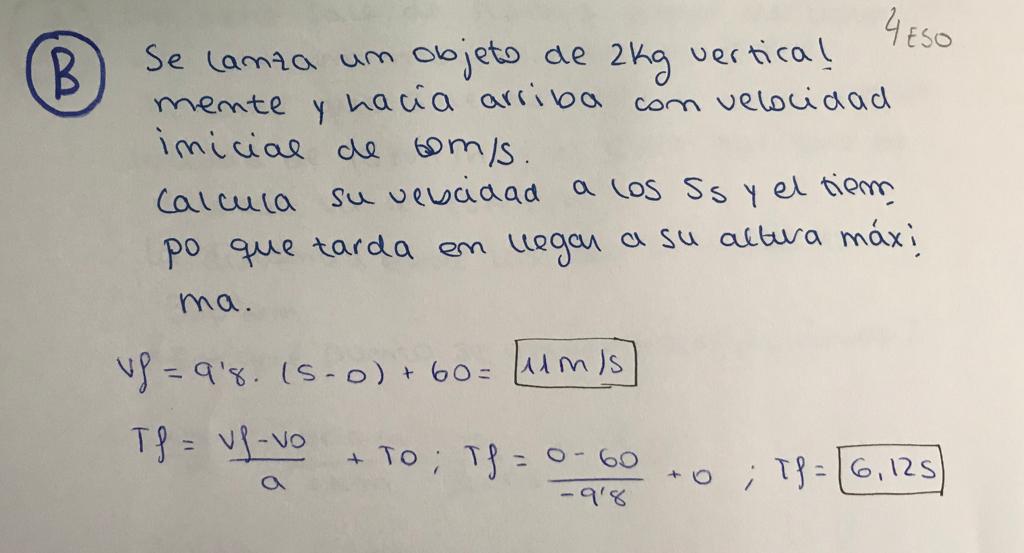 4 ESO
B Se lanza un objeto de 2kg vertical
mente y hacía arriba con velocidad
inicial de 60m/s.
Calcula su velocidad a los 5s y el tiem
po que tarda en llegar a su altura máxi
ma.
Vf = 9'8. (5-0) + 60 = 11m/s
Tf = Vf-Vo/a + To; Tf = 0-60/-9'8 + 0; Tf = 6,12s